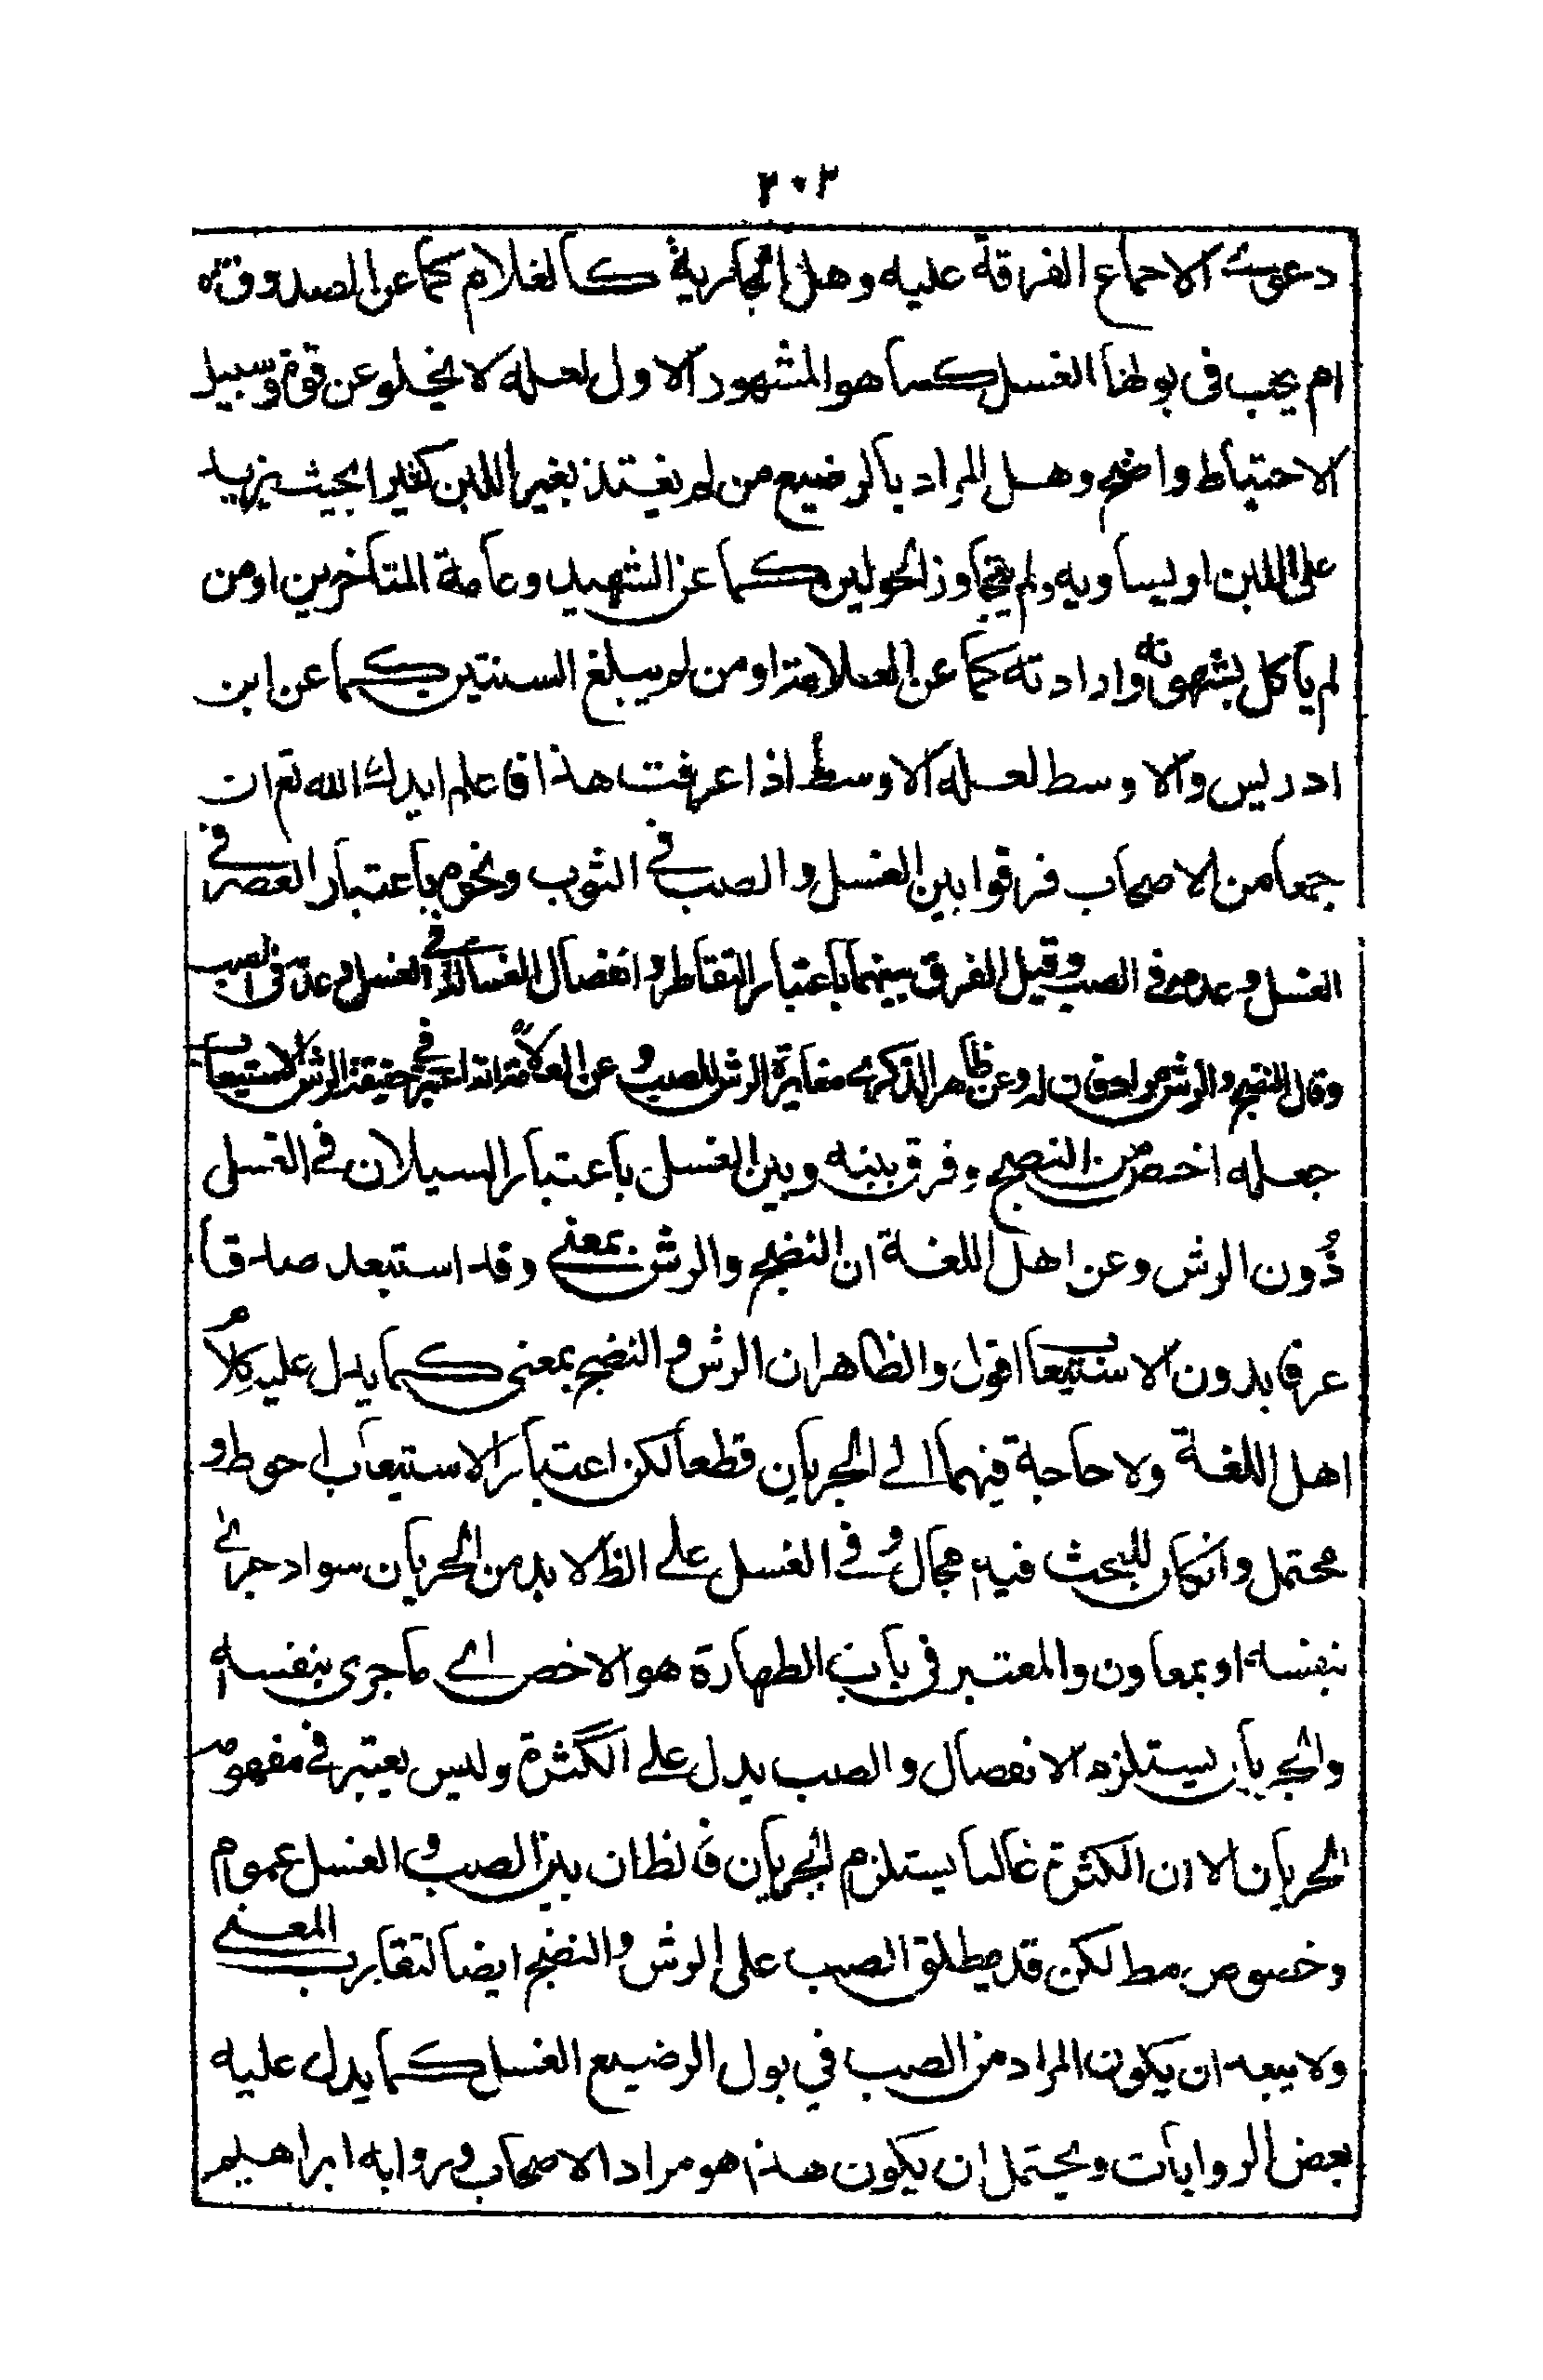 ٢٠٢
دعوى الاجماع الفرقة عليه وهل الجارية كالغلام كما عن الصدوق ره
ام يجب فى بولها الغسل كما هو المشهور الاول لعله لا يخلو عن قوة وسبيل
الاحتياط واضح وهل المراد بالرضيع من لم يغتذ بغير اللبن كثيرا بحيث يزيد
على اللبن او يساويه ولم يتجاوز الحولين كما عن الشهيد وعامة المتاخرين او من
لم ياكل بشهوته وارادته كما عن العلامة او من لم يبلغ السنتين كما عن ابن
ادريس والاوسط لعله الاوسط اذا عرفت هذا فاعلم ايدك الله تع ان
جمعا من الاصحاب فرقوا بين الغسل والصب فى الثوب ونحوه باعتبار العصر فى
الغسل وعدمه فى الصب وقيل الفرق بينهما باعتبار التقاطر وانفصال الغسالة فى الغسل وعدمه فى الصب
وقال النضح والرش مرادفان له وعن ظاهر الذكرى مغايرة الرش للصب وعن العلامة انه اعتبر فى حقيقة الرش الاستيعاب
جعله اخص من النضح وفرق بينه وبين الغسل باعتبار السيلان فى الغسل
دُون الرش وعن اهل اللغة ان النضح والرش بمعنى وقد استبعد صادقا
عرفا بدون الاستيعاب اقول والظاهر ان الرش والنضح بمعنى كما يدل عليه كلام
اهل اللغة ولا حاجة فيهما الى الجريان قطعا لكن اعتبار الاستيعاب احوط و
محتمل وان كان للبحث فيه مجال وفى الغسل على الظ لا بد من الجريان سواء جرى
بنفسه او بمعاون والمعتبر فى باب الطهارة هو الاخص اى ما جرى بنفسه
والجريان يستلزم الانفصال والصب يدل على الكثرة وليس يعتبر فى مفهومه
الجريان الا ان الكثرة غالبا يستلزم الجريان فالظ ان بين الصب والغسل عموم
وخصوص مط لكن قد يطلق الصب على الرش والنضح ايضا لتقارب المعنى
ولا يبعد ان يكون المراد من الصب في بول الرضيع الغسل كما يدل عليه
بعض الروايات ويحتمل ان يكون هذا هو مراد الاصحاب ورواية ابراهيم